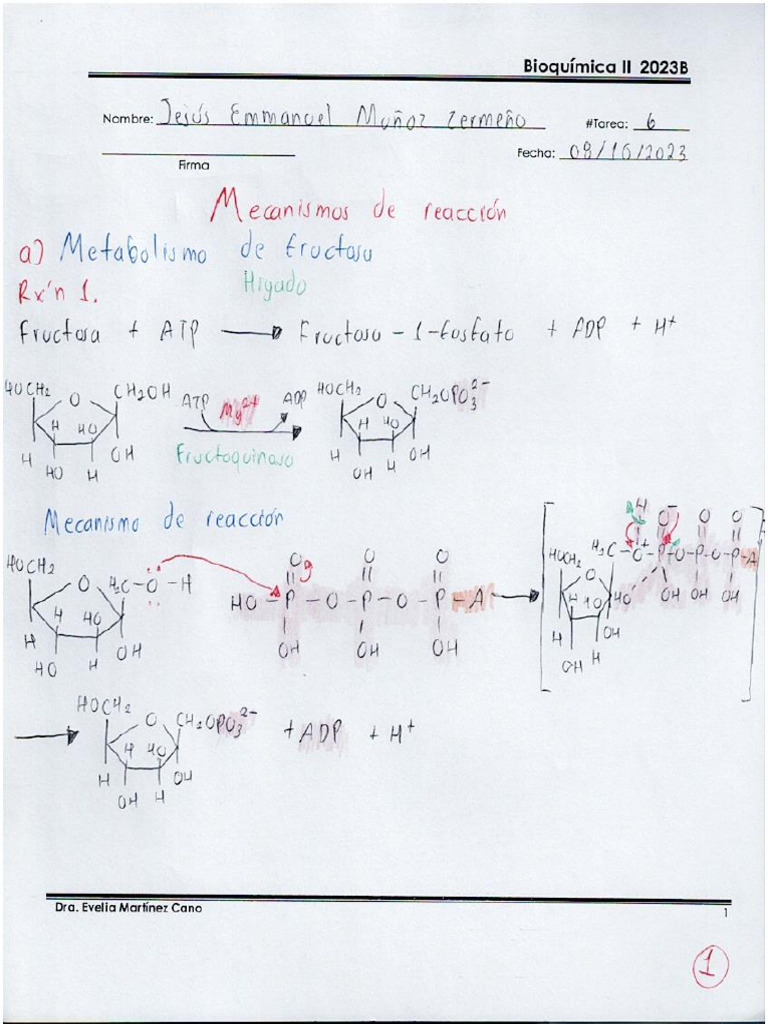 Bioquímica II 2023B
Nombre: Jesús Emmanuel Muñoz Zermeño #Tarea: 6
Firma Fecha: 08/10/2023
Mecanismos de reacción
a) Metabolismo de fructosa
Rx'n 1. Hígado
Fructosa + ATP → Fructosa-1-fosfato + ADP + H⁺
HOCH₂ O CH₂OH ATP Mg²⁺ ADP HOCH₂ O CH₂OPO₃²⁻
H HO H HO
H HO H OH Fructoquinasa H OH H OH
Mecanismo de reacción
HOCH₂ O H₂C-O-H O O O
H HO HO-P-O-P-O-P-A →
HO H OH OH OH OH
H O⁻ O O
HOCH₂ H₂C-O⁺-P-O-P-O-P-A
O H HO HO OH OH OH
H OH H OH
→ HOCH₂ O CH₂OPO₃²⁻ + ADP + H⁺
H HO
H OH H OH
Dra. Evelia Martínez Cano 1
1